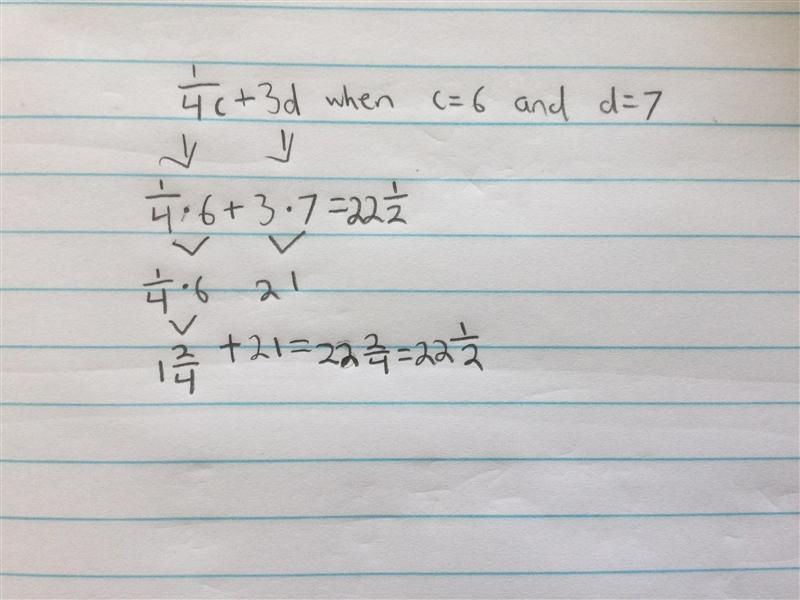 1/4c+3d when c=6 and d=7
1/4·6+3·7=22 1/2
1/4·6 21
1 2/4 +21=22 2/4=22 1/2